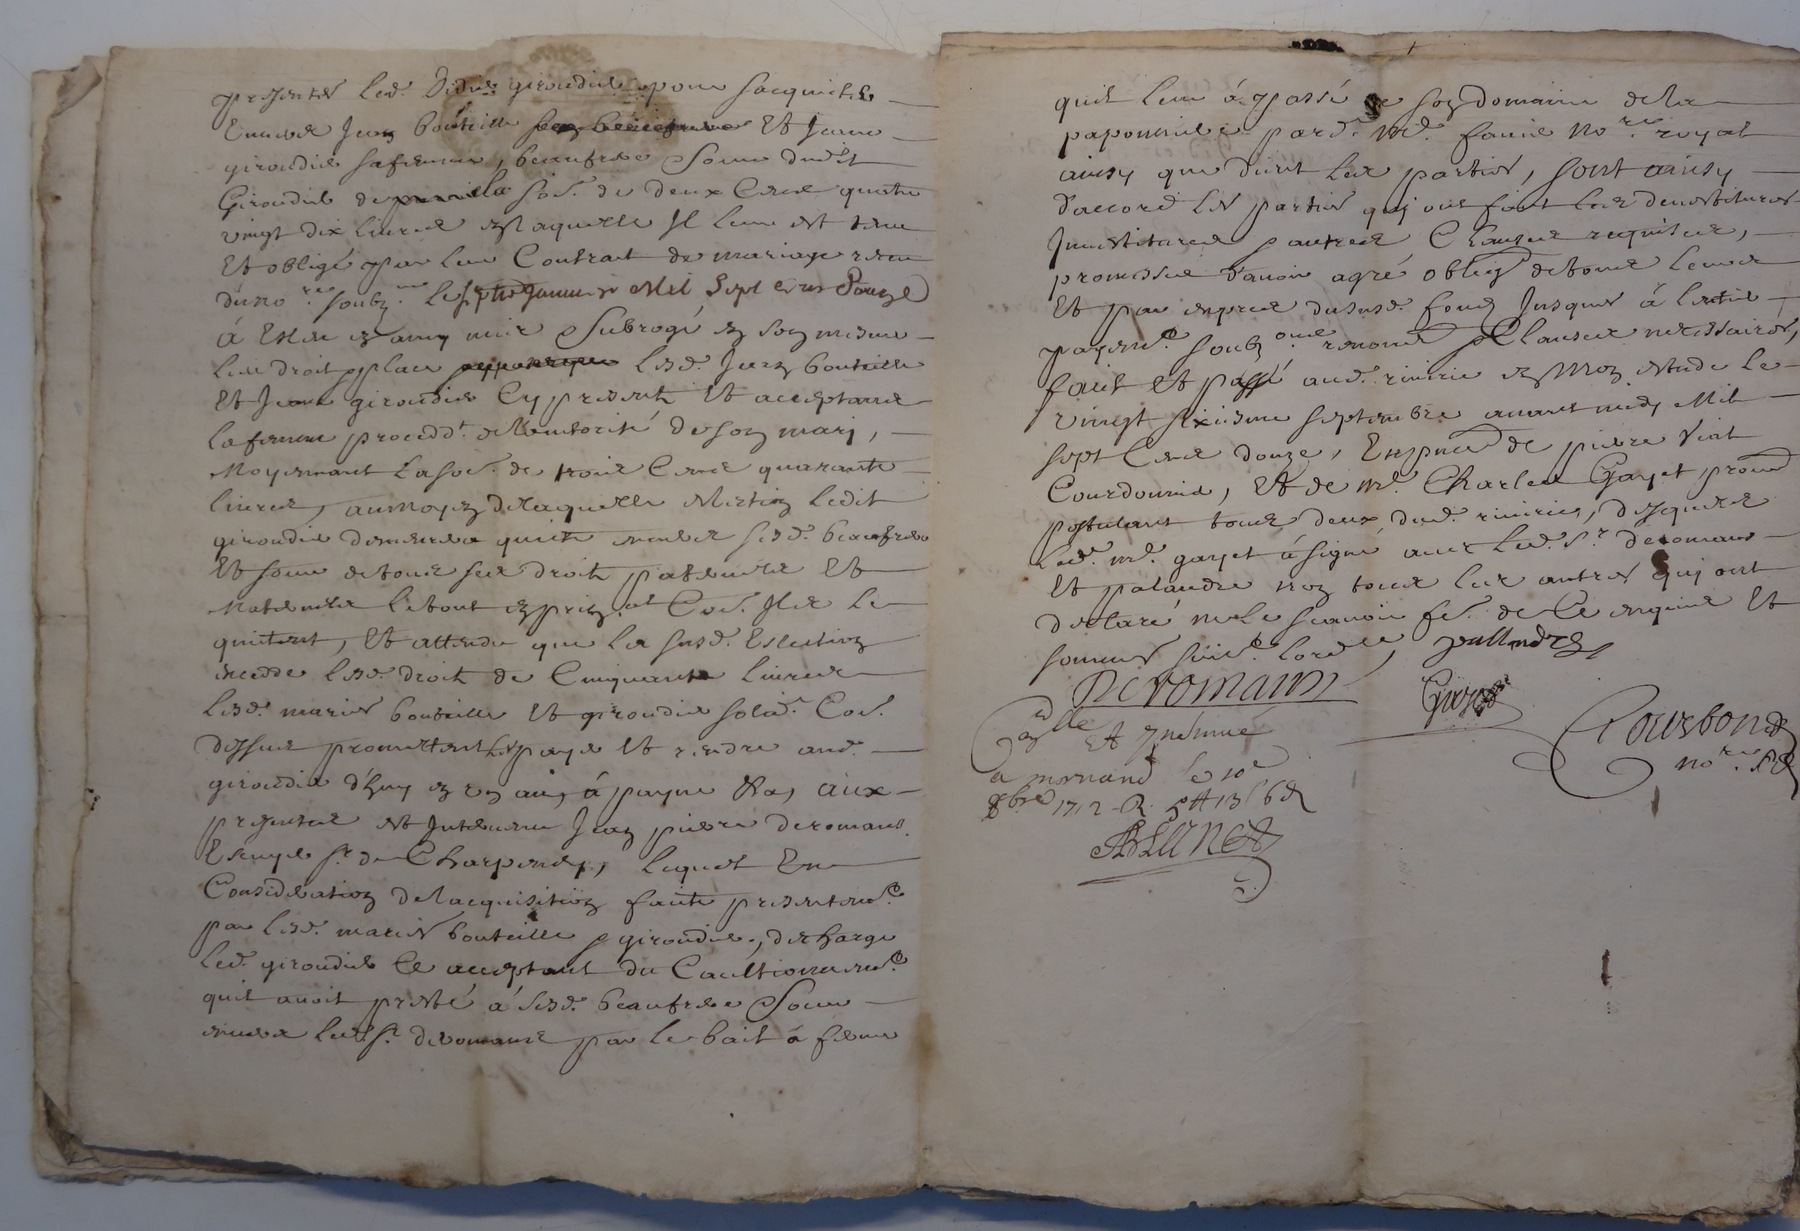 presentes led. Didier giroudier pour sacquiter
Enuers Jean bouteille et Jeane
giroudier sa femme, beaufrere & soeur dudit
Giroudier de la so.e de deux Cent quatre
vingt dix liures en laquelle Il leur est tenu
Et obligé par leur Contrat de mariage receu
du no.re soubz.né le Januier Mil Sept Cens Douze
à & subrogé en son mesme
lieu droit & place lesd. Jean bouteille
Et Jeane giroudier Cy presents Et acceptants
la femme proced.t de l'authorité de son mary,
Moyennant La so.e de trois Cent quarante
liures, au moyen de laquelle ledit
giroudier demeure quitte enuers sesd. beaufrere
Et soeur de tous ses droits paternels Et
Maternels le tout en prin.al Et Jls le
quittent, Et attendu que la susd.
excedde lesd. droits de Cinquante liures
lesd. mariés bouteille Et giroudier solid.
dessus promettent les payer Et rendre aud.
giroudier d'huy en un an, à payne &a, aux
presentes est Interuenu Jean pierre deromans
Escuyer s.r de Charpeney, lequel En
Consideration de lacquisition faite presentem.t
par lesd. mariés bouteille & giroudier, descharge
led. giroudier Ce acceptant du Cautionnem.t
quil auoit presté à sesd. beaufrere & soeur
enuers led. s.r deromans par le bail à ferme
quil leur à passé de son domaine de la
paponniere par d.t M.e faure No.re royal
ainsy que dient les parties, sont ainsy
d'accord les parties qui ont fait les deuestitures
Inuestitures & autres Clauses requises,
promesses d'auoir agré oblig.on de tous leurs
Et par exprès du susd. fond Jusques à lentier
payem.t soubz renon.on & Clauses necessaires,
fait Et passé aud. riuirie en mon estude le
vingt sixiesme septembre auant midy Mil
sept Cens douze, En pnce de pierre Viat
Courdonnier, Et de m.e Charles Gayet procu.r
postulant tous deux dud. riuirie, desquels
led. m.e gayet à signé auec led. s.r deromans
Et palandre non tous les autres qui ont
declaré ne le scauoir fe. de Ce enquis Et
sommés suiu.t lord.ce, pallandre
Deromans
Gayet
Courbon
no.re R.
Et Insinué
a mornand le 10e
8bre 1712 R.